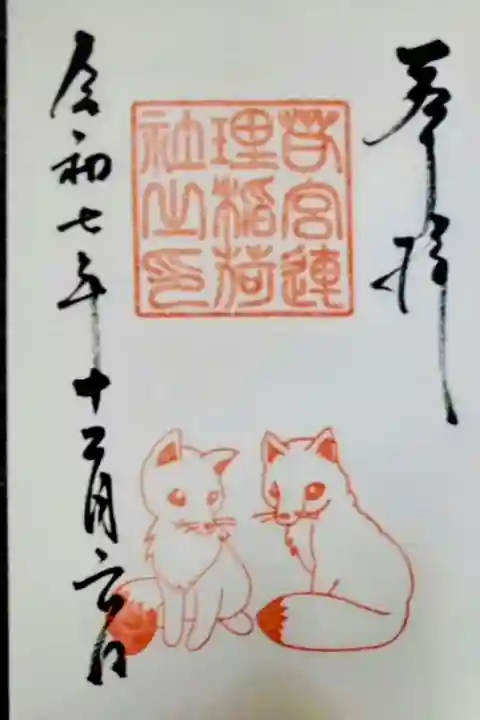 奉拝
若宮連
理稲荷
社之印
令和七年十二月六日